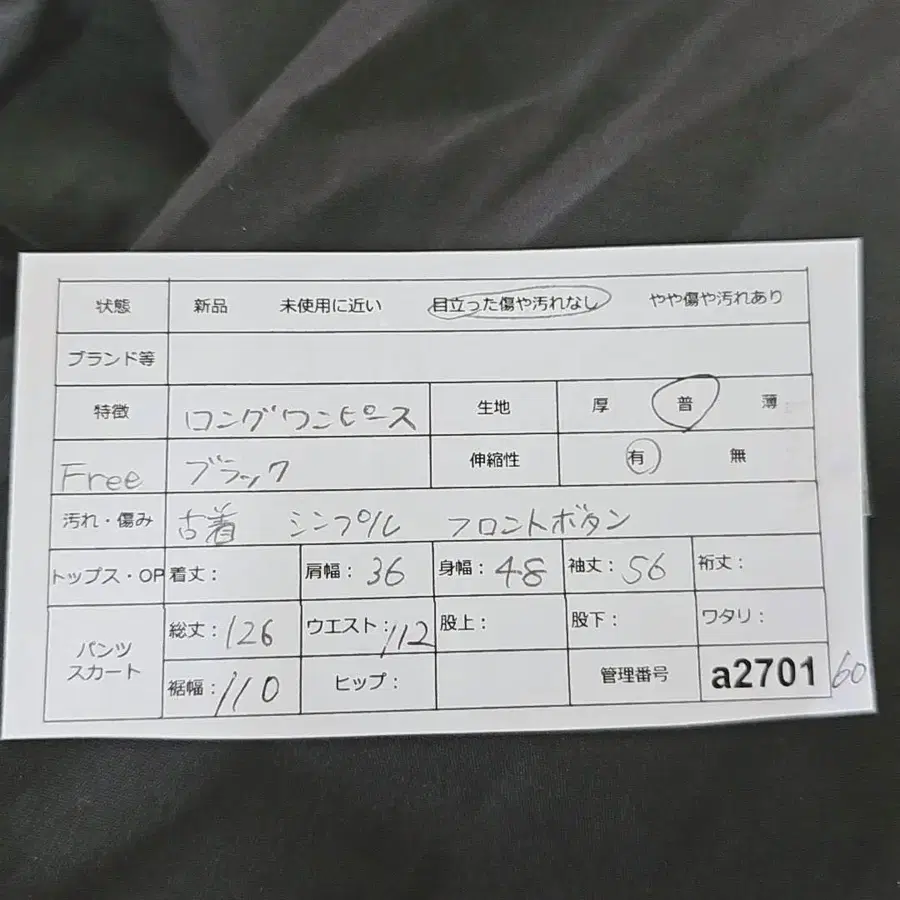 状態 新品 未使用に近い 目立った傷や汚れなし やや傷や汚れあり
ブランド等
特徴 ロングワンピース 生地 厚 普 薄
Free ブラック 伸縮性 有 無
汚れ・傷み 古着 シンプル フロントボタン
トップス・OP 着丈: 肩幅: 36 身幅: 48 袖丈: 56 裄丈:
パンツ スカート
総丈: 126 ウエスト: 112 股上: 股下: ワタリ:
裾幅: 110 ヒップ: 管理番号 a2701 60